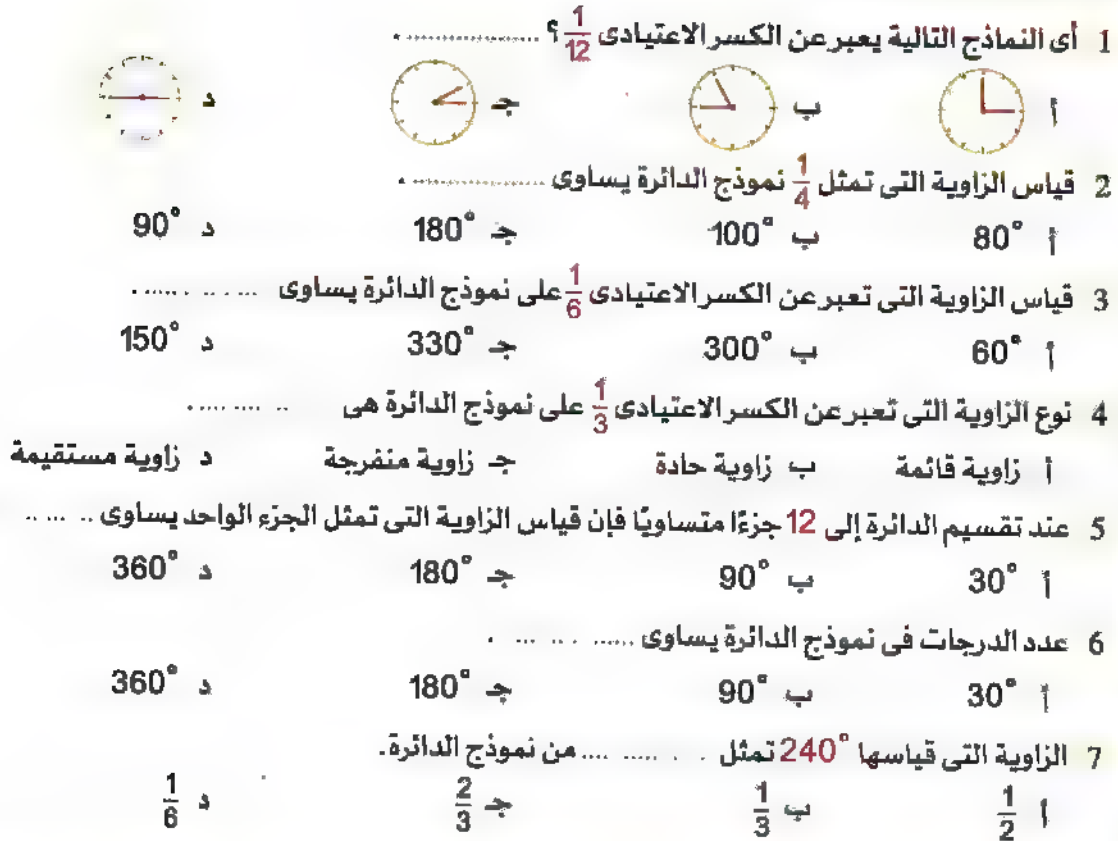 1 أى النماذج التالية يعبر عن الكسر الاعتيادى 1/12 ؟ ..................
أ ب جـ د
2 قياس الزاوية التى تمثل 1/4 نموذج الدائرة يساوى ..................
أ 80° ب 100° جـ 180° د 90°
3 قياس الزاوية التى تعبر عن الكسر الاعتيادى 1/6 على نموذج الدائرة يساوى ............ .
أ 60° ب 300° جـ 330° د 150°
4 نوع الزاوية التى تعبر عن الكسر الاعتيادى 1/3 على نموذج الدائرة هى ............ .
أ زاوية قائمة ب زاوية حادة جـ زاوية منفرجة د زاوية مستقيمة
5 عند تقسيم الدائرة إلى 12 جزءًا متساويًا فإن قياس الزاوية التى تمثل الجزء الواحد يساوى .........
أ 30° ب 90° جـ 180° د 360°
6 عدد الدرجات فى نموذج الدائرة يساوى ............ .
أ 30° ب 90° جـ 180° د 360°
7 الزاوية التى قياسها 240° تمثل ............ من نموذج الدائرة.
أ 1/2 ب 1/3 جـ 2/3 د 1/6